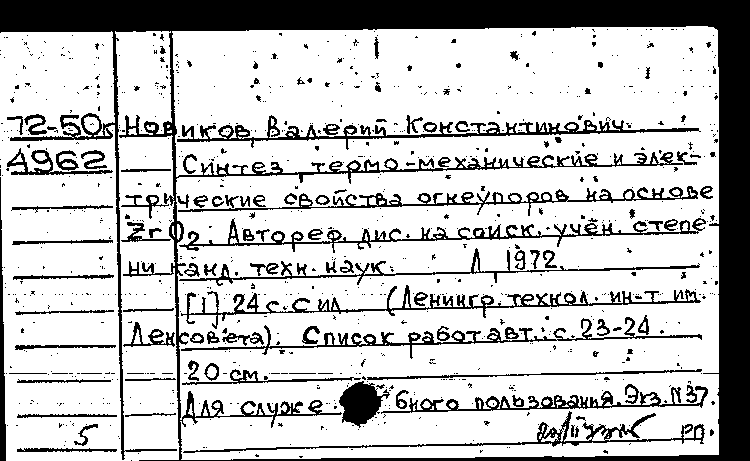 72-50к Новиков, Валерий Константинович.
4962 Синтез, термо-механические и элек-
трические свойства огнеупоров на основе
ZrO2. Автореф. дис. на соиск. учен. степе-
ни канд. техн. наук. Л, 1972.
[1], 24 с. с ил. (Ленингр. технол. ин-т им.
Ленсовета). Список работ авт.: с. 23-24.
20 см.
Для служе бного пользования. Экз. N37.
5 рп.